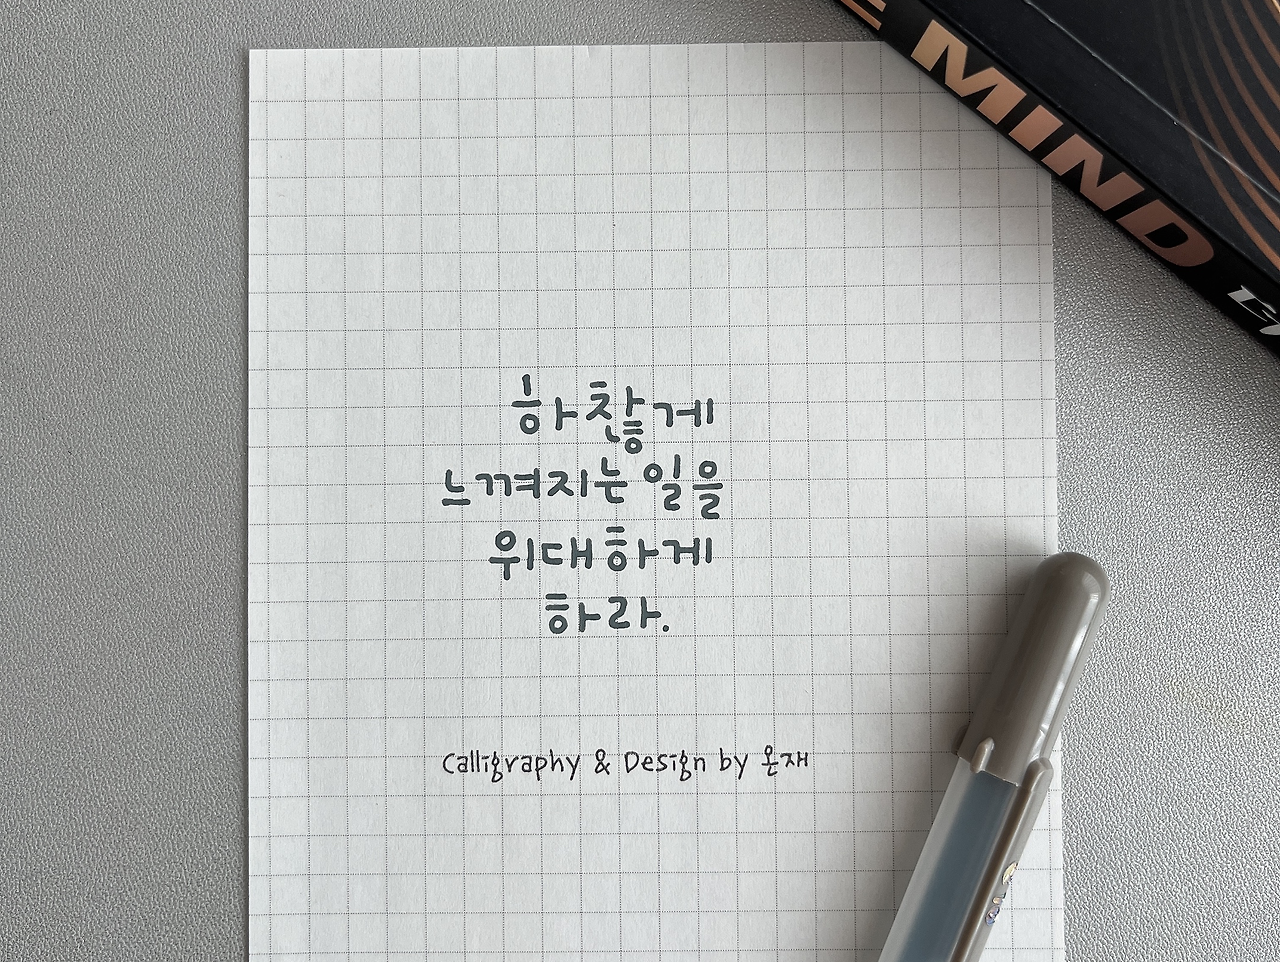 MIND
하찮게
느껴지는 일을
위대하게
하라.
Calligraphy & Design by 온재